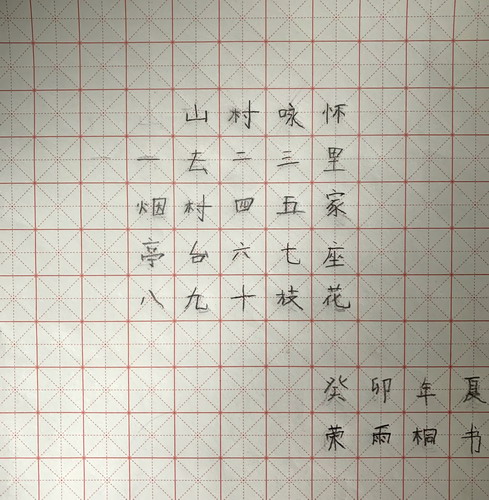 山村咏怀
一去二三里
烟村四五家
亭台六七座
八九十枝花
癸卯年夏
荣雨桐书